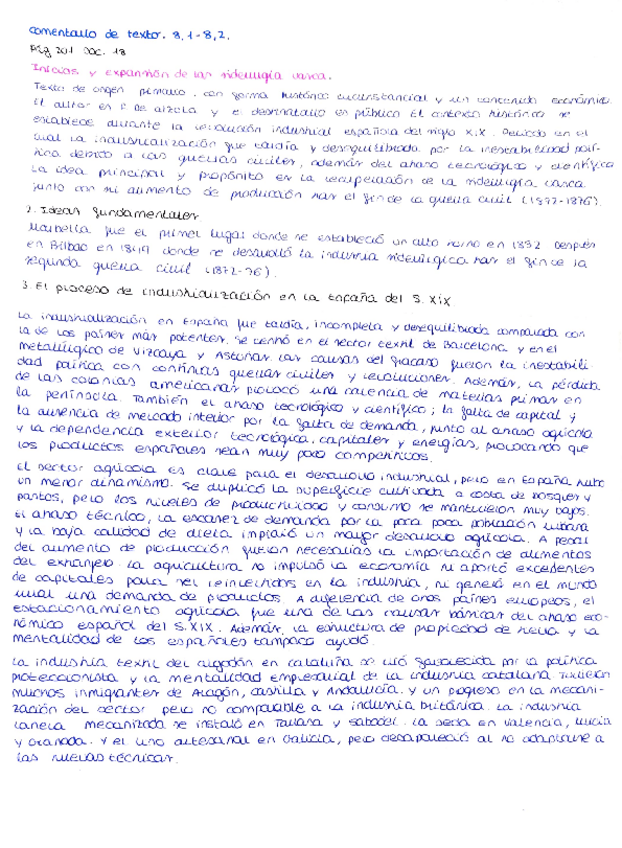 comentario de texto. 8.1-8.2.
Pág 201 Doc. 18
Inicios y expansión de las siderurgia vasca.
Texto de origen primario, con forma histórico circunstancial y un contenido económico.
El autor es P. De Alzola y el destinatario es público. El contexto histórico se
establece durante la revolución industrial española del siglo XIX. Periodo en el
cual la industrialización fue tardía y desequilibrada por la inestabilidad polí-
tica debido a las guerras civiles, además del atraso tecnológico y científico
La idea principal y propósito es la recuperación de la siderurgia vasca
junto con su aumento de producción tras el fin de la guerra civil (1872-1876).
2. Ideas fundamentales
Marbella fue el primer lugar donde se estableció un alto horno en 1832 después
en Bilbao en 1849 donde se desarrolló la industria siderúrgica tras el fin de la
segunda guerra civil (1872-76).
3. El proceso de industrialización en la España del S. XIX
La industrialización en España fue tardía, incompleta y desequilibrada comparada con
la de los países más potentes. Se centró en el sector textil de Barcelona y en el
metalúrgico de Vizcaya y Asturias. Las causas del fracaso fueron la inestabili-
dad política con continuas guerras civiles y revoluciones. Además, la pérdida
de las colonias americanas provocó una carencia de materias primas en
la península. También el atraso tecnológico y científico; la falta de capital y
la ausencia de mercado interior por la falta de demanda, junto al atraso agrícola
y la dependencia exterior tecnológica, capitales y energías, provocando que
los productos españoles sean muy poco competitivos.
El sector agrícola es clave para el desarrollo industrial, pero en España hubo
un menor dinamismo. Se duplicó la superficie cultivada a costa de bosques y
pastos, pero los niveles de productividad y consumo se mantuvieron muy bajos.
El atraso técnico, la escasez de demanda por la poca poca población urbana
y la baja calidad de dieta impidió un mayor desarrollo agrícola. A pesar
del aumento de producción fueron necesarias la importación de alimentos
del extranjero. La agricultura no impulsó la economía ni aportó excedentes
de capitales para ser reinvertidos en la industria, ni generó en el mundo
rural una demanda de productos. A diferencia de otros países europeos, el
estacionamiento agrícola fue una de las causas básicas del atraso eco-
nómico español del S.XIX. Además, la estructura de propiedad de tierra y la
mentalidad de los españoles tampoco ayudó.
La industria textil del algodón en cataluña se vió favorecida por la política
proteccionista y la mentalidad empresarial de la industria catalana. Tuvieron
muchos inmigrantes de Aragón, Castilla y Andalucía. y un progreso en la mecani-
zación del sector pero no comparable a la industria británica. La industria
lanera mecanizada se instaló en Tarrasa y Sabadell. La seda en Valencia, Murcia
y Granada. Y el lino artesanal en Galicia, pero desapareció al no adaptarse a
las nuevas técnicas.